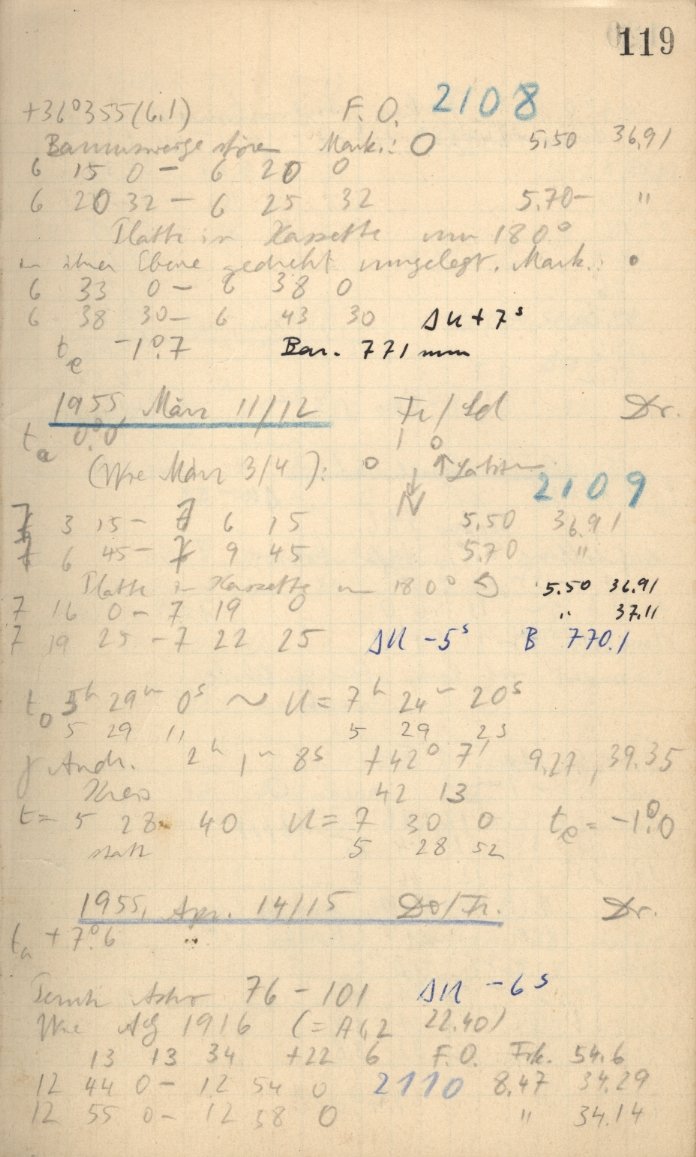 119
+36°355(6.1) F.O. 2108
Baumzweige stören Mark.: O 5.50 36.91
6 15 0 – 6 20 0
6 20 32 – 6 25 32 5.70– "
Platte in Kassette um 180°
in ihrer Ebene gedreht umgelegt. Mark.: •
6 33 0 – 6 38 0
6 38 30 – 6 43 30 ΔU + 7ˢ
tₑ –1°.7 Bar. 771 mm
1955 März 11/12 Fr/Sd Dr.
tₐ 0°.0
(Wie März 3/4): N 2109
7 3 15 – 7 6 15 5.50 36.91
7 6 45 – 7 9 45 5.70 "
Platte in Kassette um 180° 5.50 36.91
7 16 0 – 7 19 0 " 37.11
7 19 25 – 7 22 25 ΔU –5ˢ B 770.1
t₀ 5ʰ 29ᵐ 0ˢ ~ U = 7ʰ 24ᵐ 20ˢ
5 29 11 5 29 23
γ Andr. 2ʰ 1ᵐ 8ˢ +42° 7' 9.27, 39.35
Kreis 42 13
t = 5 28 40 U = 7 30 0 tₑ = –1°.0
statt 5 28 52
1955, Apr. 14/15 Do/Fr. Dr.
tₐ +7°.6
76 – 101 ΔU –6ˢ
Wie AG 1916 (= 22.40)
13 13 34 +22 6 F.O. Frk. 54.6
12 44 0 – 12 54 0 2110 8.47 34.29
12 55 0 – 12 58 0 " 34.14